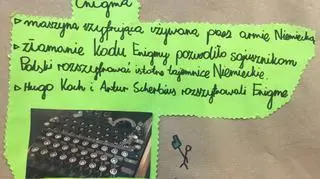 Enigma
▹ maszyna szyfrująca używana przez armię Niemiecką
▹ Złamanie Kodu Enigmy pozwoliło sojusznikom
Polski rozszyfrować istotne tajemnice Niemieckie.
▹ Hugo Koch i Artur Scherbius rozszyfrowali Enigmę